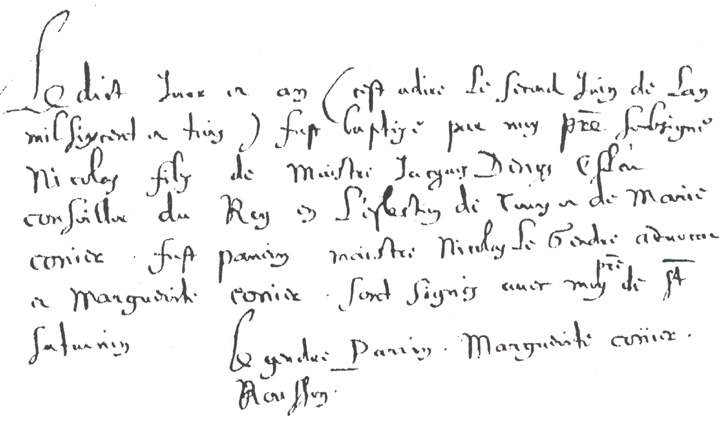 Le dict Jour et an (cest adire Le second Juin de Lan
mil sixcent et trois) fust baptizé par moy pbre soubsigné
Nicolas fils de Maistre Jacques Denys Esleu
conseiller du Roy en L'eslection de Tours et de Marie
conier. fust parrin maistre Nicolas Le Gendre advocat
et Marguerite conier. sont signés avec moy pbre de St
Saturnin Le gendre Parrin. Marguerite conier.
Rousson.